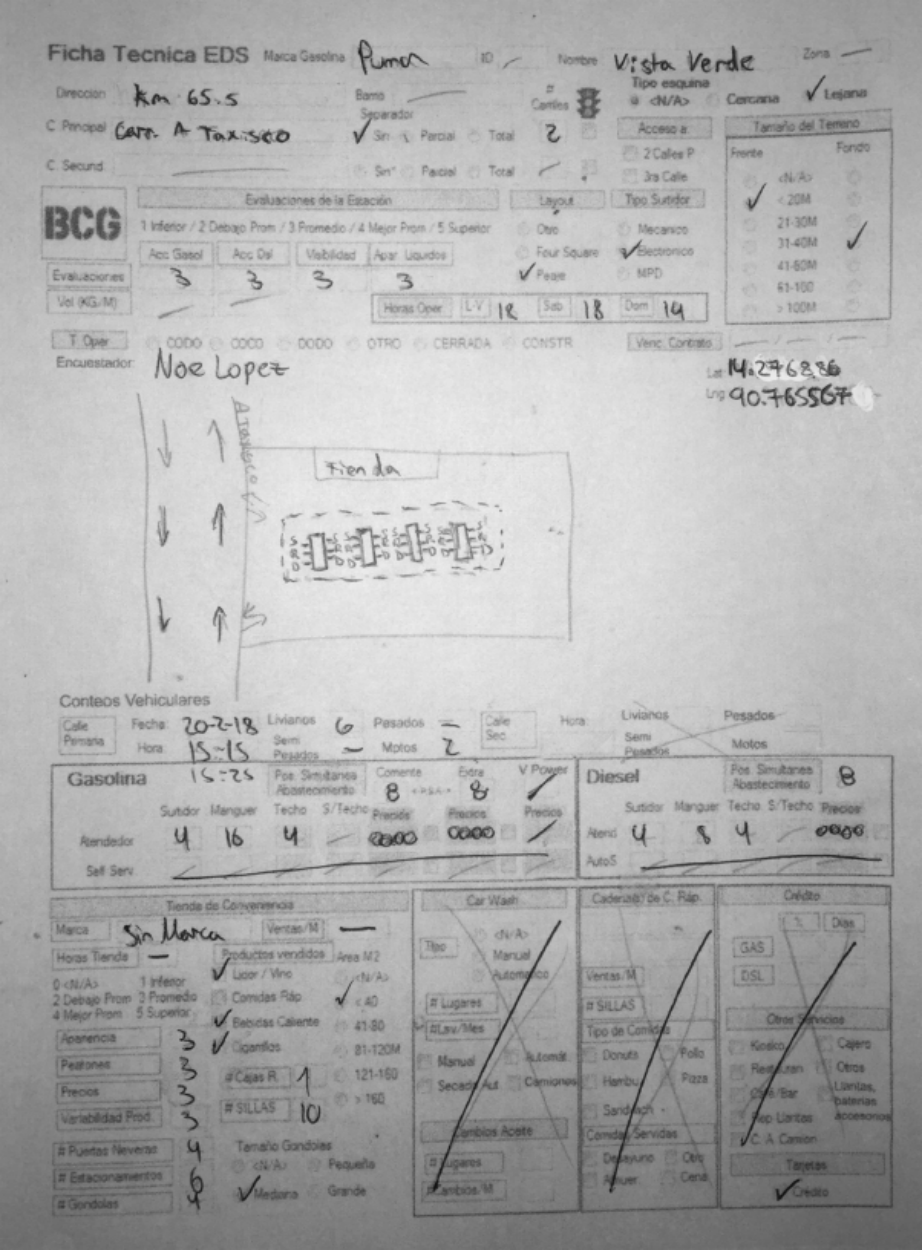 Ficha Tecnica EDS Marca Gasolina Puma ID — Nombre Vista Verde Zona —
Direccion Km 65.5 Barrio — # Carriles Tipo esquina <N/A> Cercana ✓ Lejana
C Principal Carr. A Taxisco Separador ✓ Sin Parcial Total 2 Acceso a: Tamaño del Terreno
2 Calles P Frente Fondo
C. Secund — Sin Parcial Total — 3ra Calle <N/A>
BCG Evaluaciones de la Estación Layout Tipo Surtidor ✓ < 20M
1 Inferior / 2 Debajo Prom / 3 Promedio / 4 Mejor Prom / 5 Superior Otro Mecanico 21-30M
Acc Gasol Acc Dsl Visibilidad Apar Liquidos Four Square ✓ Electronico 31-40M ✓
Evaluaciones 3 3 3 3 ✓ Peaje MPD 41-60M
61-100
Vol (KG/M) — — Horas Oper L-V 18 Sab 18 Dom 14 > 100M
T Oper CODO COCO DODO OTRO CERRADA CONSTR Venc. Contrato
Encuestador Noe Lopez Lat 14.276886
Lng 90.765567
A Taxisco
Tienda
S R D S R D S R D S R D
Conteos Vehiculares
Calle Primaria Fecha 20-2-18 Livianos 6 Pesados — Calle Sec Hora Livianos Pesados
Hora 15:15 Semi Pesados — Motos 2 Semi Pesados Motos
15:25
Gasolina Pos Simultanea Abastecimiento Corriente 8 Extra 8 V Power Diesel Pos Simultanea Abastecimiento 8
Surtidor Manguer Techo S/Techo Precios Precios Precios Surtidor Manguer Techo S/Techo Precios
Atendedor 4 16 4 — 0000 0000 — Atend 4 8 4 — 0000
Self Serv AutoS
Tienda de Conveniencia Car Wash Cadena(s) de C. Ráp. Crédito
Marca Sin Marca Ventas/M — <N/A> % Dias
Horas Tienda — Productos vendidos Area M2 Tipo Manual GAS
0 <N/A> 1 Inferior ✓ Licor / Vino <N/A> Automatico Ventas/M DSL
2 Debajo Prom 3 Promedio Comidas Ráp ✓ < 40 # Lugares # SILLAS
4 Mejor Prom 5 Superior ✓ Bebidas Caliente 41-80 #Lav/Mes Tipo de Comidas Otros Servicios
Apariencia 3 ✓ Cigarrillos 81-120M Manual Automát Donuts Pollo Kiosko Cajero
Peatones 3 # Cajas R 1 121-160 Secado Aut Camiones Hambu Pizza Restauran Otros
Precios 3 > 160 Sandwich Café/Bar Llantas, baterias accesorios
Variabilidad Prod. 3 # SILLAS 10 Cambios Aceite Comidas Servidas Rep Llantas
C. A Camion
# Puertas Neveras 4 Tamaño Gondolas # Lugares Desayuno Otro Tarjetas
# Estacionamientos 6 <N/A> Pequeña #Cambios/M Almuer. Cena ✓ Credito
# Gondolas 4 ✓ Mediana Grande